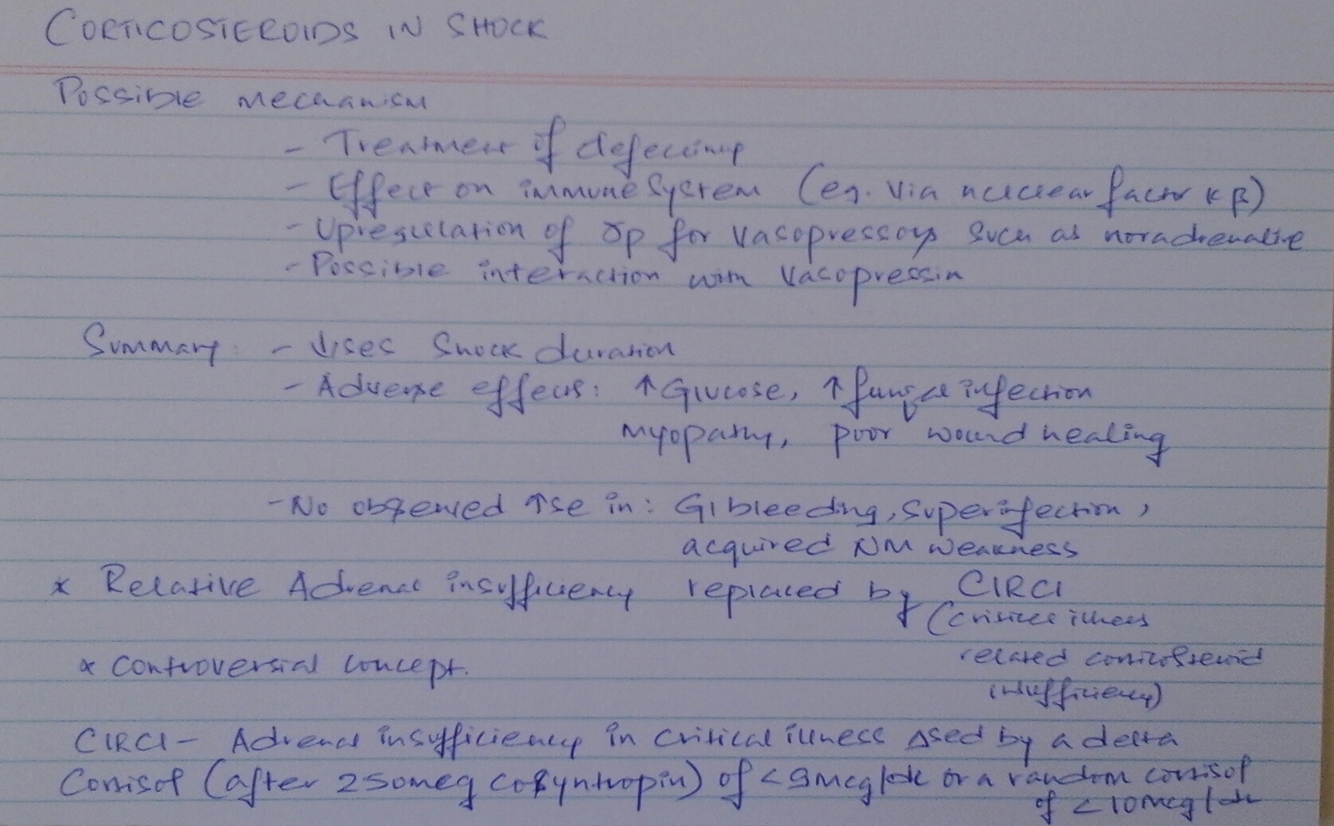 CORTICOSTEROIDS IN SHOCK
Possible mechanism
- Treatment of deficiency
- Effect on immune system (eg. via nuclear factor κβ)
- Upregulation of γp for vasopressors such as noradrenaline
- Possible interaction with vasopressin
Summary: - ↓ses shock duration
- Adverse effects: ↑ Glucose, ↑ fungal infection
myopathy, poor wound healing
- No observed ↑se in: GI bleeding, superinfection,
acquired NM weakness
* Relative Adrenal insufficiency replaced by CIRCI
(critical illness
* controversial concept.
related corticosteroid
insufficiency)
CIRCI - Adrenal insufficiency in critical illness Δsed by a delta
Cortisol (after 250mcg cosyntropin) of <9mcg/dL or a random cortisol
of <10mcg/dL